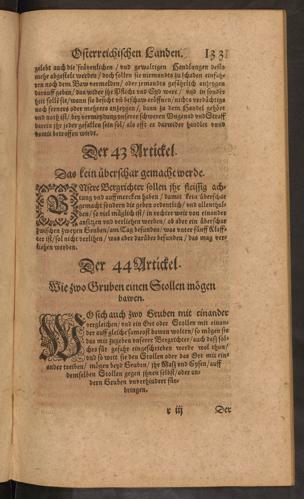 Osterreichischen Landen. 133
gelebt auch die frävenlichen / und gewaltigen Handlungen desto
mehr abgestelt werden / doch sollen sie niemandts zu schaden einfah-
ren noch dem Baw vermelden / oder jemandts gefährlich anzeigen
darauff geben / das wider jhr Pflicht und Eyd were / und in sonder-
heit sollē sie / wann sie bericht uñ beschaw eröffnen / nichts verdächtigs
noch ferrers oder mehrers anzeygen / dann zu dem Handel gehört
und noth ist / bey vermeydung unserer schweren Ungenad und Straff
darein jhr jeder gefallen sein sol / als offt er darwider handlet unnd
damit betretten wirdt.
Der 43 Artickel.
Das kein überschar gemacht werde.
UNsere Bergrichter sollen jhr fleissig ach-
tung und auffmercken haben / damit kein überschar
gemacht sondern die geben ordenlich / und allenthal-
den / so viel müglich ist / in rechter weit von einander
ansitzen und verliehen werden / ob aber ein überschar
zwischen zweyen Gruben / am Tag befunden / was unter fünff Klaff-
ter ist / sol nicht verlihen / was aber darüber befunden / das mag ver-
liehen werden.
Der 44 Artickel.
Wie zwo Gruben einen Stollen mögen
bawen.
WO sich auch zwo Gruben mit einander
vergleichen / und ein Ort oder Stollen mit einan-
der auff gleichs Samkost bawen wolten / so mögen sie
das mit zugeben unserer Bergrichter / auch daß sol-
ches für gefahr eingeschrieben werde wol thun /
und so weit sie den Stollen oder das Ort mit ein-
ander treiben / mögen beyd Gruben / jhr Maß und Eysen / auff
demselben Stollen gegen jhnen selbst / oder an-
dern Gruben unverhindert für-
bringen.
r iij Der